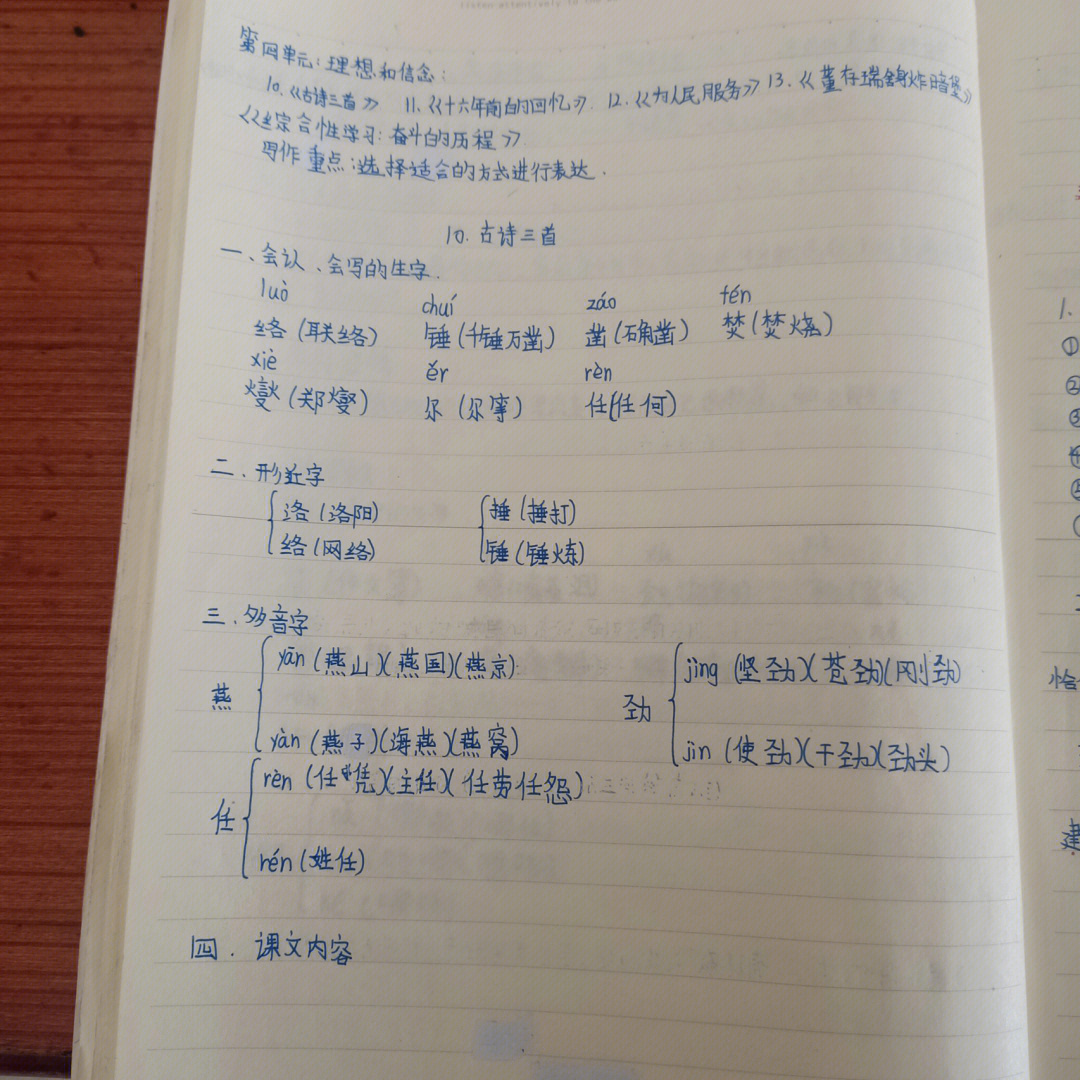 第四单元：理想和信念：
10.《古诗三首》 11.《十六年前的回忆》. 12.《为人民服务》 13.《董存瑞舍身炸暗堡》
《综合性学习：奋斗的历程》
写作重点：选择适合的方式进行表达.
10. 古诗三首
一、会认、会写的生字.
luò chuí záo fén
络（联络） 锤（千锤万凿） 凿（确凿） 焚（焚烧）
xiè ěr rèn
燮（郑燮） 尔（尔等） 任（任何）
二. 形近字
洛（洛阳） 捶（捶打）
络（网络） 锤（锤炼）
三. 多音字
燕 yān（燕山）（燕国）（燕京）
yàn（燕子）（海燕）（燕窝）
劲 jìng（坚劲）（苍劲）（刚劲）
jìn（使劲）（干劲）（劲头）
任 rèn（任凭）（主任）（任劳任怨）
rén（姓任）
四. 课文内容
1.
①
②
③
④
恰
建